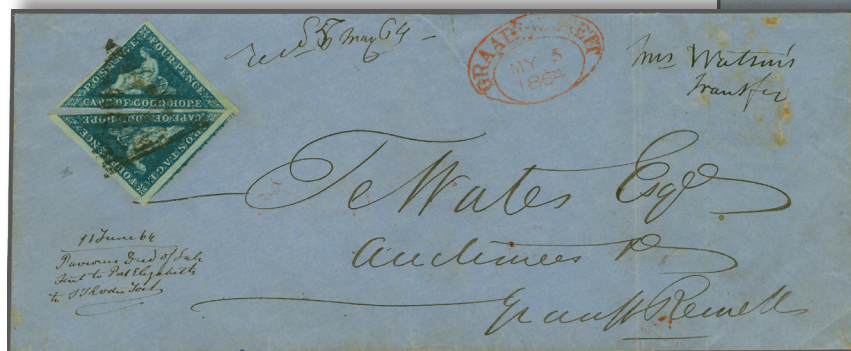 POSTAGE FOUR PENCE
CAPE OF GOOD HOPE
CAPE OF GOOD HOPE
POSTAGE FOUR PENCE
May 64
GRAAFF REINETT
MY 5
1864
Mrs Watson's
Transfer
Te Water Esqr
Auctioneer
Graaff Reinett
11 June 64
Previous Deed of Sale
sent to Port Elizabeth
to